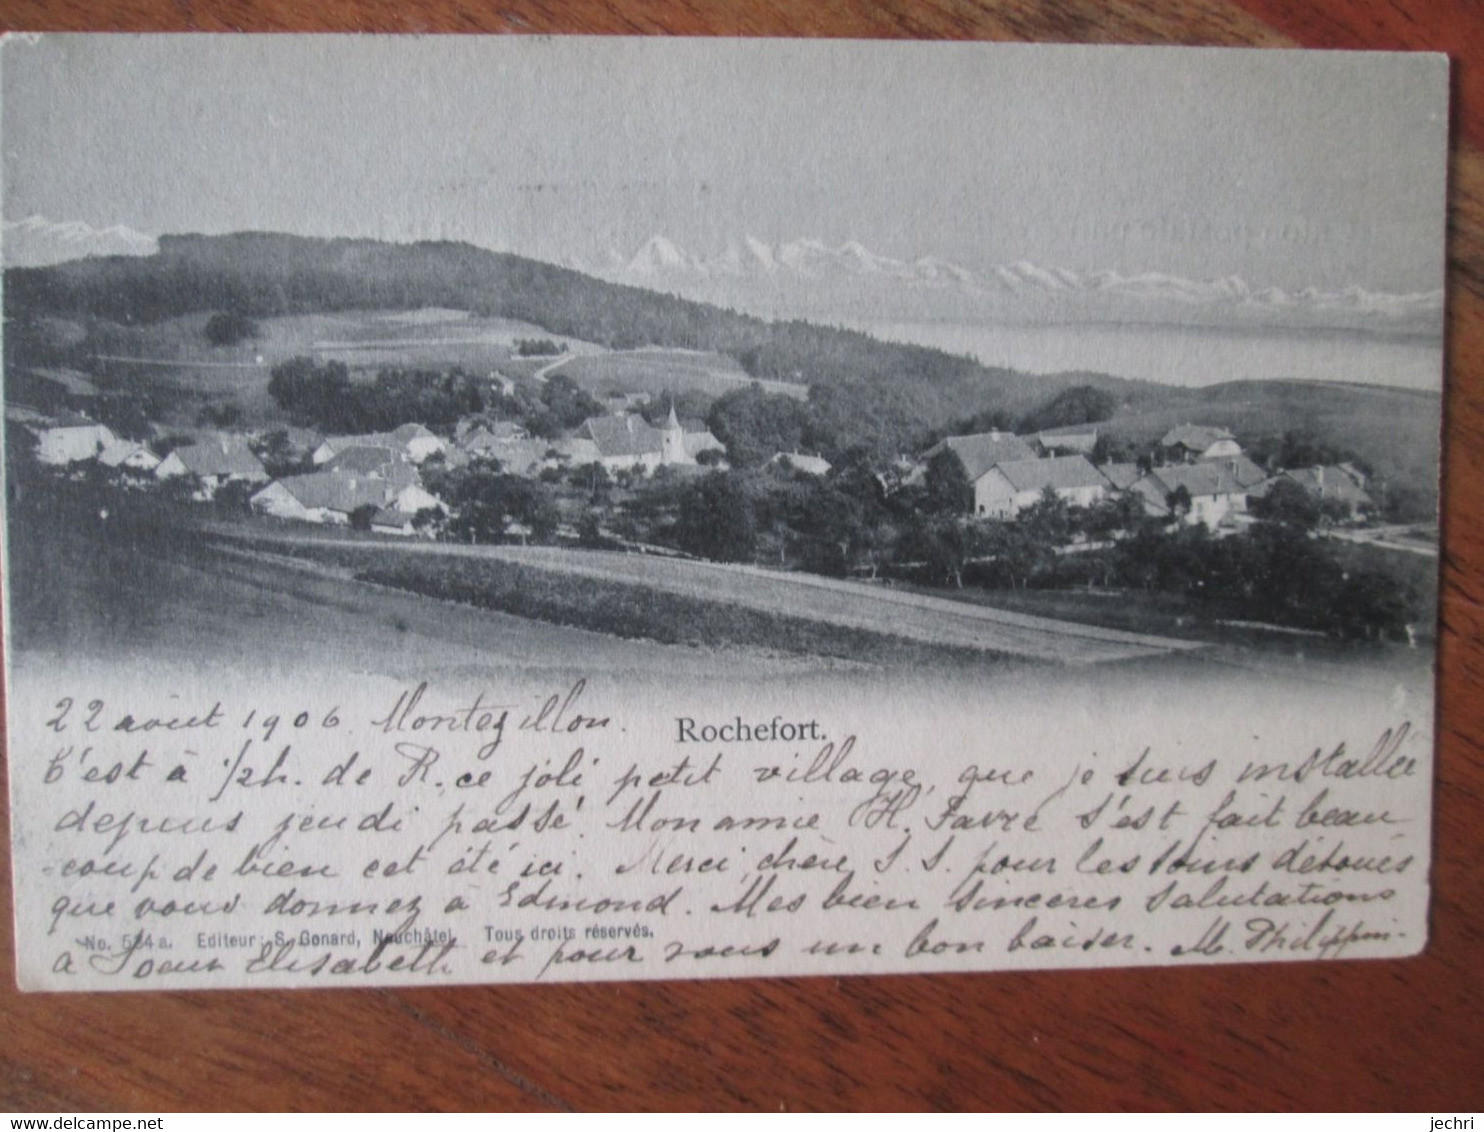 22 août 1906. Montezillon.
Rochefort.
C'est à 1/2 h. de R. ce joli petit village, que je suis installée
depuis jeudi passé. Mon amie H. Favre s'est fait beau
-coup de bien cet été ici. Merci, chère S. S. pour les soins dévoués
que vous donnez à Edmond. Mes bien sincères salutations
No. 524a. Editeur: S. Gonard, Neuchâtel. Tous droits réservés.
à Soeur Elisabeth et pour vous un bon baiser. M. Philippin.
delcampe.net
jechri